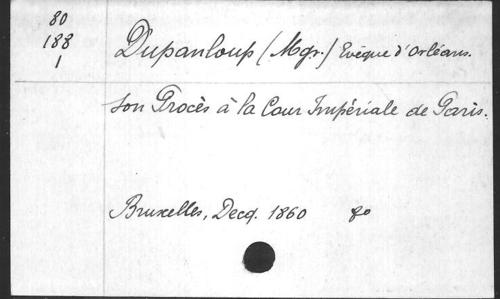 80
188
1
Dupanloup (Mgr.) Evêque d'Orléans.
son Procès à la Cour Impériale de Paris.
Bruxelles, Decq. 1860 8o